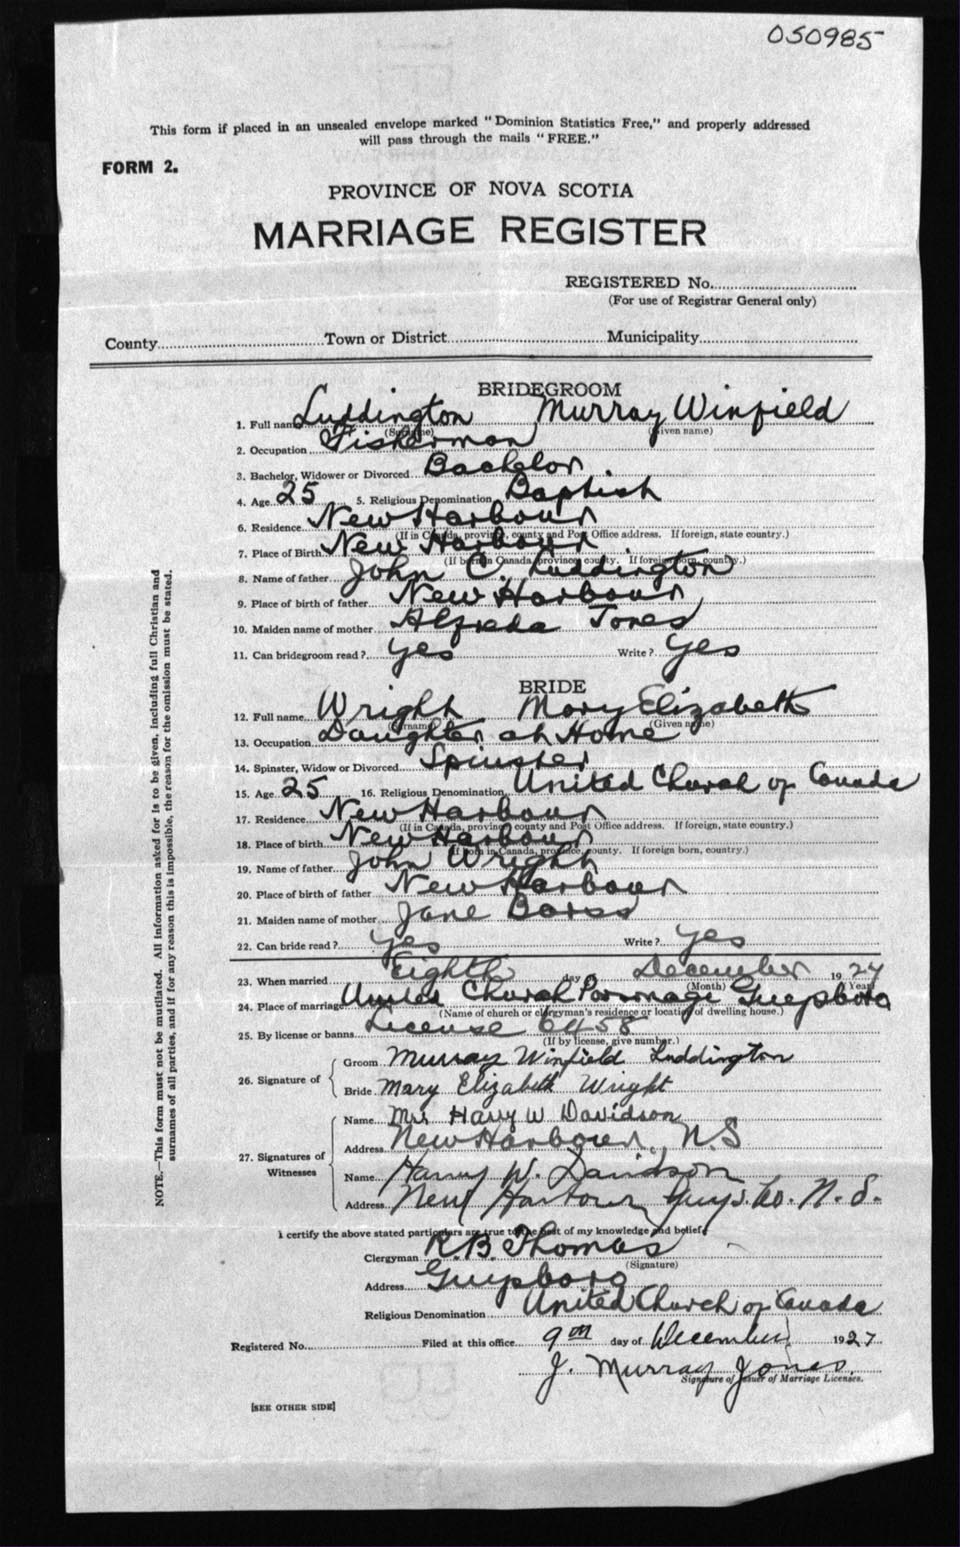 050985
This form if placed in an unsealed envelope marked "Dominion Statistics Free," and properly addressed
will pass through the mails "FREE."
FORM 2.
PROVINCE OF NOVA SCOTIA
MARRIAGE REGISTER
REGISTERED No.
(For use of Registrar General only)
County Town or District Municipality
BRIDEGROOM
1. Full name Luddington Murray Winfield
(Surname) (Given name)
2. Occupation Fisherman
3. Bachelor, Widower or Divorced Bachelor
4. Age 25 5. Religious Denomination Baptist
6. Residence New Harbour
(If in Canada, province, county and Post Office address. If foreign, state country.)
7. Place of Birth New Harbour
(If born in Canada, province county. If foreign born, country.)
8. Name of father John C. Luddington
9. Place of birth of father New Harbour
10. Maiden name of mother Alfreda Jones
11. Can bridegroom read? yes Write? yes
BRIDE
12. Full name Wright Mary Elizabeth
(Surname) (Given name)
13. Occupation Daughter at Home
14. Spinster, Widow or Divorced Spinster
15. Age 25 16. Religious Denomination United Church of Canada
17. Residence New Harbour
(If in Canada, province county and Post Office address. If foreign, state country.)
18. Place of birth New Harbour
(If born in Canada, province, county. If foreign born, country.)
19. Name of father John Wright
20. Place of birth of father New Harbour
21. Maiden name of mother Jane Borss
22. Can bride read? yes Write? yes
23. When married Eighth day of December 1927
(Month) (Year)
24. Place of marriage United Church Parsonage Guysboro
(Name of church or clergyman's residence or location of dwelling house.)
25. By license or banns License 6458
(If by license, give number.)
26. Signature of
Groom Murray Winfield Luddington
Bride Mary Elizabeth Wright
27. Signatures of Witnesses
Name Mrs Harry W Davidson
Address New Harbour, N.S
Name Harry W. Davidson
Address New Harbour Guys. Co. N.S.
I certify the above stated particulars are true to the best of my knowledge and belief.
Clergyman R.B. Thomas
(Signature)
Address Guysboro
Religious Denomination United Church of Canada
Registered No. Filed at this office 9th day of December 1927
J. Murray Jones
Signature of Issuer of Marriage Licenses.
[SEE OTHER SIDE]
NOTE.—This form must not be mutilated. All information asked for is to be given, including full Christian and
surnames of all parties, and if for any reason this is impossible, the reason for the omission must be stated.